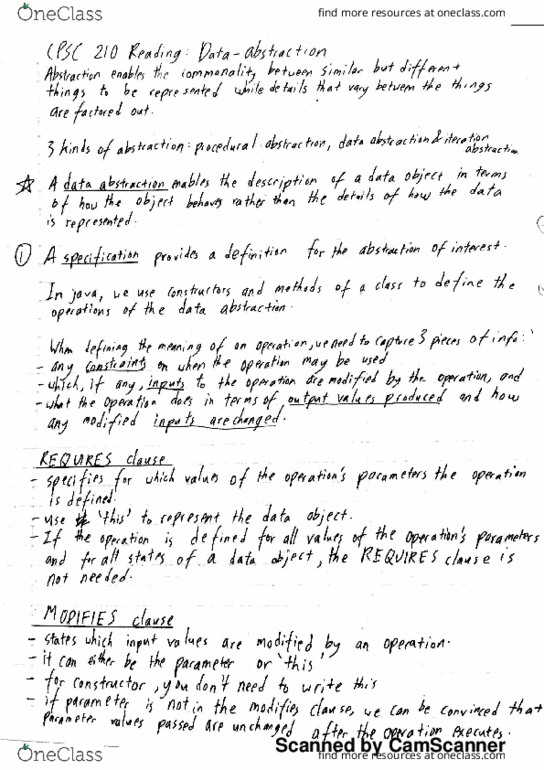 OneClass
find more resources at oneclass.com
CPSC 210 Reading: Data-abstraction
Abstraction enables the commonality between similar but different
things to be represented while details that vary betwen the things
are factored out.
3 kinds of abstraction: procedural abstraction, data abstraction & iteration
abstraction
A data abstraction enables the description of a data object in terms
of how the object behaves rather than the details of how the data
is represented.
① A specification provides a definition for the abstraction of interest.
In java, we use constructors and methods of a class to define the
operations of the data abstraction.
When defining the meaning of an operation, we need to capture 3 pieces of info:
- any constraints on when the operation may be used
- which, if any, inputs to the operation are modified by the operation, and
- what the operation does in terms of output values produced and how
any modified inputs are changed.
REQUIRES clause
- specifies for which values of the operation's parameters the operation
is defined
- use 'this' to represent the data object.
- If the operation is defined for all values of the operation's parameters
and for all states of a data object, the REQUIRES clause is
not needed.
MODIFIES clause
- states which input values are modified by an operation.
- it can either be the parameter or 'this'
- for constructor, you don't need to write this
- if parameter is not in the modifies clause, we can be convinced that
parameter values passed are unchanged after the operation executes.
Scanned by CamScanner
OneClass
find more resources at oneclass.com